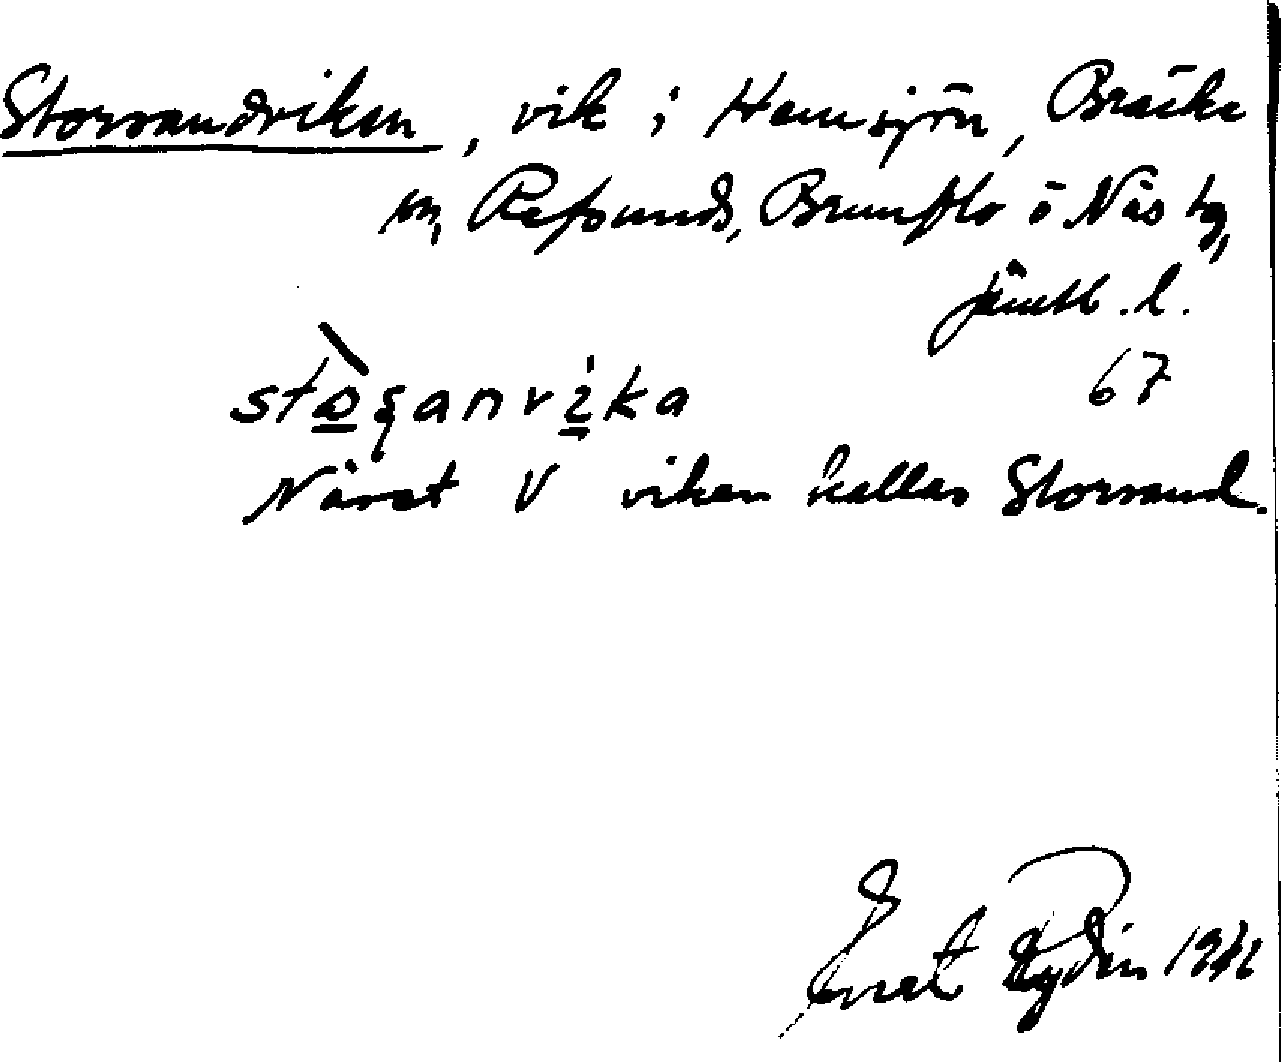 Storsandviken, vik i Hemsjön, Bräcke
sn, Refsunds, Brunflo o Näs tg,
Jämtl. l.
67
stɷ̀ʂanvìka
Näset V viken kallas Storsand.
Ernst Rydin 1942